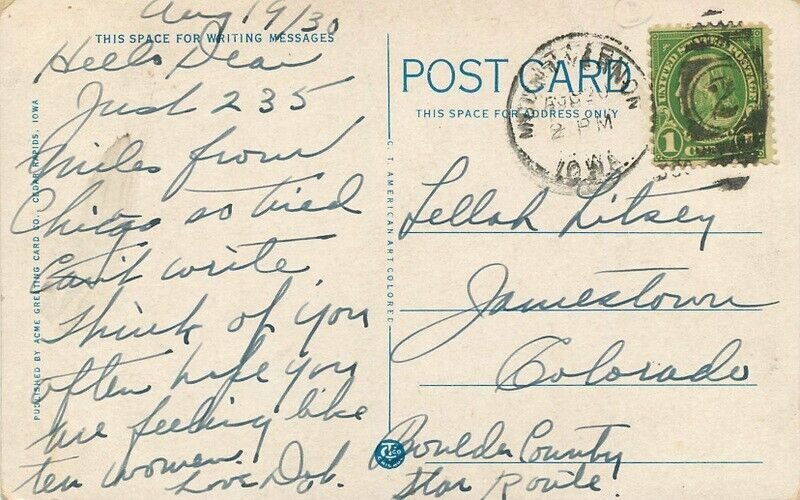 Aug 19/30
THIS SPACE FOR WRITING MESSAGES
Hello Dear
Just 235
miles from
Chicago so tired
Can't write
Think of you
often hope you
are feeling like
ten women
Love
PUBLISHED BY ACME GREETING CARD CO., CEDAR RAPIDS, IOWA
C. T. AMERICAN ART COLORED
POST CARD
THIS SPACE FOR ADDRESS ONLY
MOUNT VERNON
AUG 20
2 PM
IOWA
UNITED STATES POSTAGE
1 CENT
2
Lellah Litsey
Jamestown
Colorado
Boulder County
Star Route.